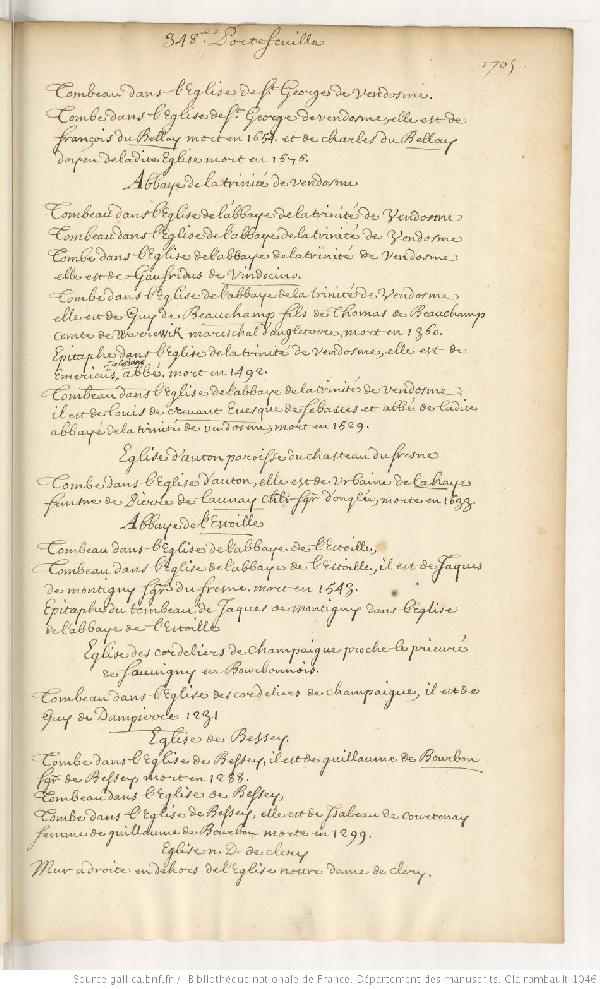 348.e Portefeuille
1705.
Tombeau dans l'Eglise de St. George de Vendosme.
Tombe dans l'Eglise de St. George de vendosme, elle est de
françois du Bellay mort en 1654. et de charles du Bellay
doyen de ladite Eglise mort en 1676.
Abbaye de la trinité de vendosme
Tombeau dans l'Eglise de l'abbaye de la trinité de Vendosme
Tombeau dans l'Eglise de l'abbaye de la trinité de Vendosme
Tombe dans l'Eglise de l'abbaye de la trinité de Vendosme
elle est de Gaufridus de Vindocino.
Tombe dans l'Eglise de l'abbaye de la trinité de Vendosme,
elle est de Guy de Beauchamp fils de Thomas de Beauchamp
comte de Warewik mareschal d'angleterre, mort en 1360.
Epitaphe dans l'Eglise de la trinité de vendosme, elle est de
Emericus abbé, mort en 1492.
Tombeau dans l'Eglise de l'abbaye de la trinité de vendosme,
il est de Louis de crevant Evesque de Sebastes et abbé de ladite
abbaye de la trinité de vendosme, mort en 1529.
Eglise d'auton paroisse du chasteau du fresne
Tombe dans l'Eglise d'auton, elle est de Urbaine de la haye
femme de Pierre de Launay chlr. sgr. d'onglée, morte en 1633.
Abbaye de l'Estoille
Tombeau dans l'Eglise de l'abbaye de l'Estoille,
Tombeau dans l'Eglise de l'abbaye de l'Estoille, il est de Jaques
de montigny sgr. du fresne. mort en 1543.
Epitaphe du tombeau de Jaques de montigny dans l'Eglise
de l'abbaye de l'Estoille
Eglise des cordeliers de Champaigue proche le prieuré
de Sauvigny en Bourbonnois.
Tombeau dans l'Eglise des cordeliers de champaigue, il est de
Guy de Dampierre 1231
Eglise de Bessey.
Tombe dans l'Eglise de Bessey, il est de guillaume de Bourbon
sgr. de Bessey mort en 1288.
Tombeau dans l'Eglise de Bessey,
Tombe dans l'Eglise de Bessey, elle est de Isabeau de Courtenay
femme de guillaume de Bourbon morte en 1299.
Eglise n. D. de clery
Mur a droite en dehors de l'Eglise nostre dame de clery.
Source gallica.bnf.fr / Bibliothèque nationale de France. Département des manuscrits. Clairambault 1046